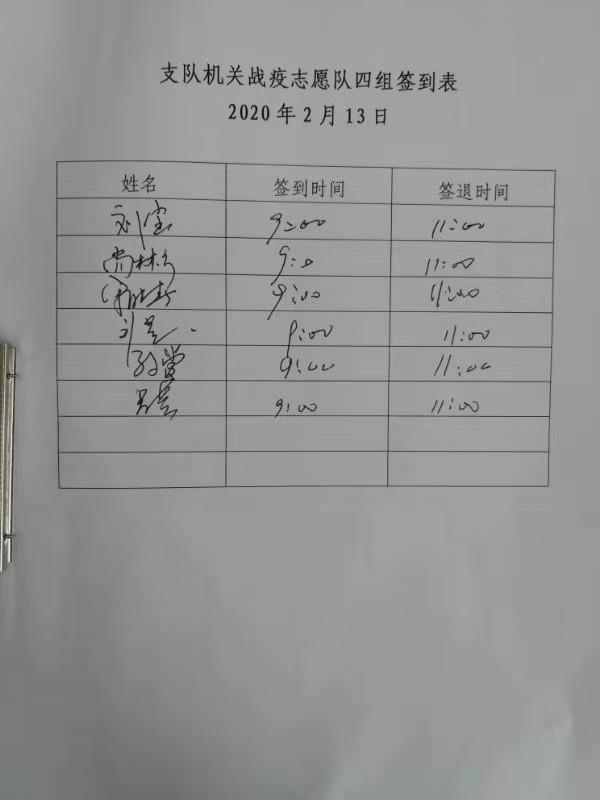 支队机关战疫志愿队四组签到表
2020年2月13日
姓名 签到时间 签退时间
9:00 11:00
9:0 11:00
9:00 11:00
9:00 11:00
9:00 11:00
9:00 11:00